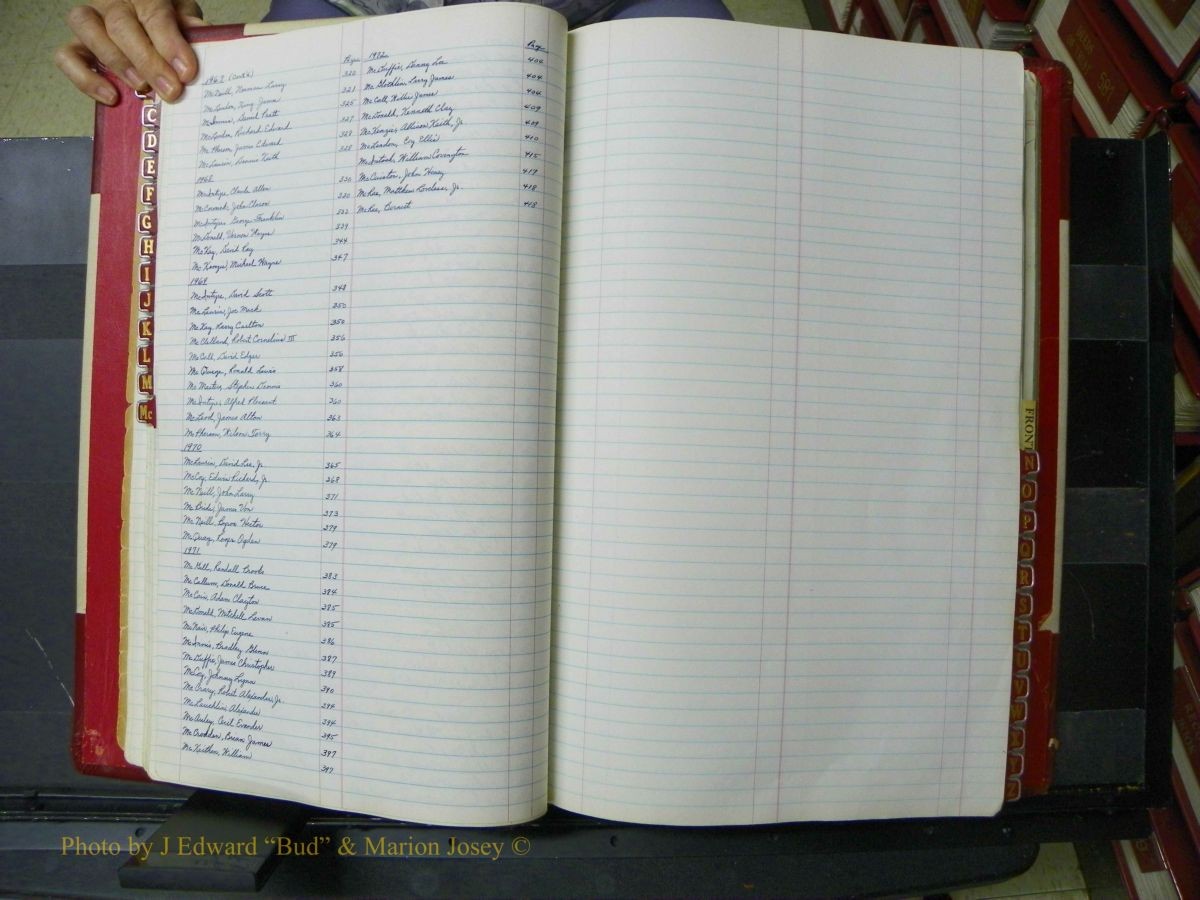 Page
1967 (Cont'd)
McNeill, Norman Larry 320
McLendon, King James 321
McInnis, David Pratt 325
McLendon, Richard Edward 327
McPherson, James Edward 328
McLaurin, Dennis Keith 328
1968
McIntyre, Charles Allen 330
McCormick, John Claron 330
McIntyre, George Franklin 332
McDonald, Vernon Hayes 339
McKay, David Ray 344
McKenzie, Michael Wayne 347
1969
McIntyre, David Scott 348
McLaurin, Joe Mack 350
McKay, Harry Carlton 350
McClelland, Robert Cornelius III 356
McCall, David Edgar 356
McQuage, Ronald Lewis 358
McMasters, Stephen Dennis 360
McIntyre, Alfred Pleasant 360
McLeod, James Alton 363
McPherson, Wilson Torry 364
1970
McLaurin, David Lee, Jr. 365
McCoy, Edwin Richard, Jr. 368
McNeill, John Larry 371
McBride, James Von 373
McNeill, Byron Hector 379
McQuag, Roger Ogden 379
1971
McGill, Randall Brooks 383
McCallum, Donald Bruce 384
McCain, Adam Clayton 385
McDonald, Mitchell Levan 385
McNair, Philip Eugene 386
McInnis, Bradley Glenn 387
McDuffie, James Christopher 389
McCoy, Johnny Lynn 390
McCrary, Robert Alexander, Jr. 394
McLauchlin, Alexander 394
McAuley, Cecil Evander 395
McCrodden, Brian James 397
McKeithen, William 397
1972 Page
McDuffie, Danny Lee 404
McGlothlin, Larry James 404
McCall, Willie James 404
McDonald, Kenneth Clay 409
McKenzie, Allison Keith, Jr. 409
McLendon, Coy Ellis 410
McIntosh, William Covington 415
McQuiston, John Henry 417
McRae, Matthew Lovelace, Jr. 418
McRae, Burnest 418
C
D
E
F
G
H
I
J
K
L
M
Mc
FRONT
N
O
P
Q
R
S
T
U
V
W
X
Y
Z
581
Photo by J Edward “Bud” & Marion Josey ©